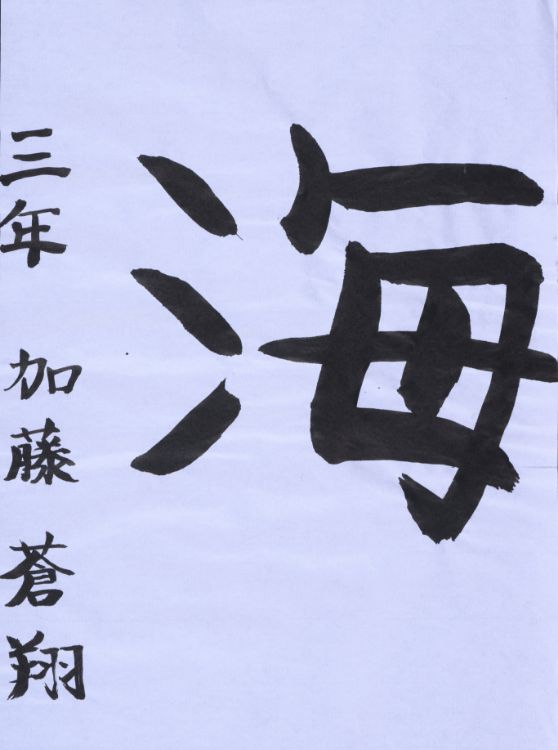 海
三年 加藤 蒼翔